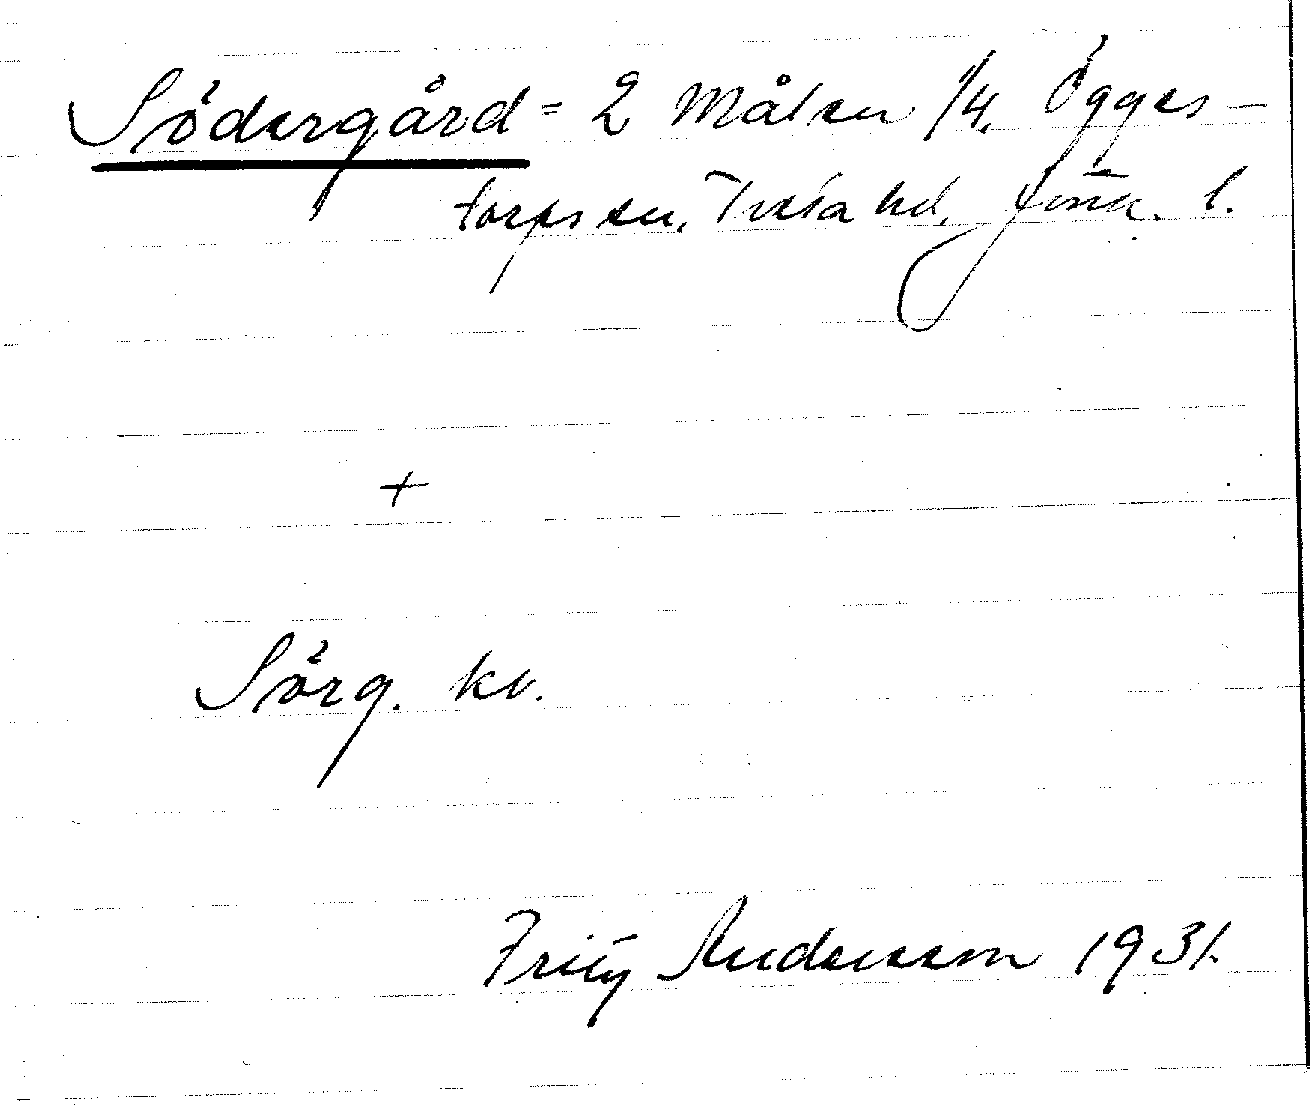 Södergård = 2 Målsen 1/4. Ögges-
torps sn, Tveta hd, Jönk. l.
+
Sörg. kv.
Fritz Andersson 1931.